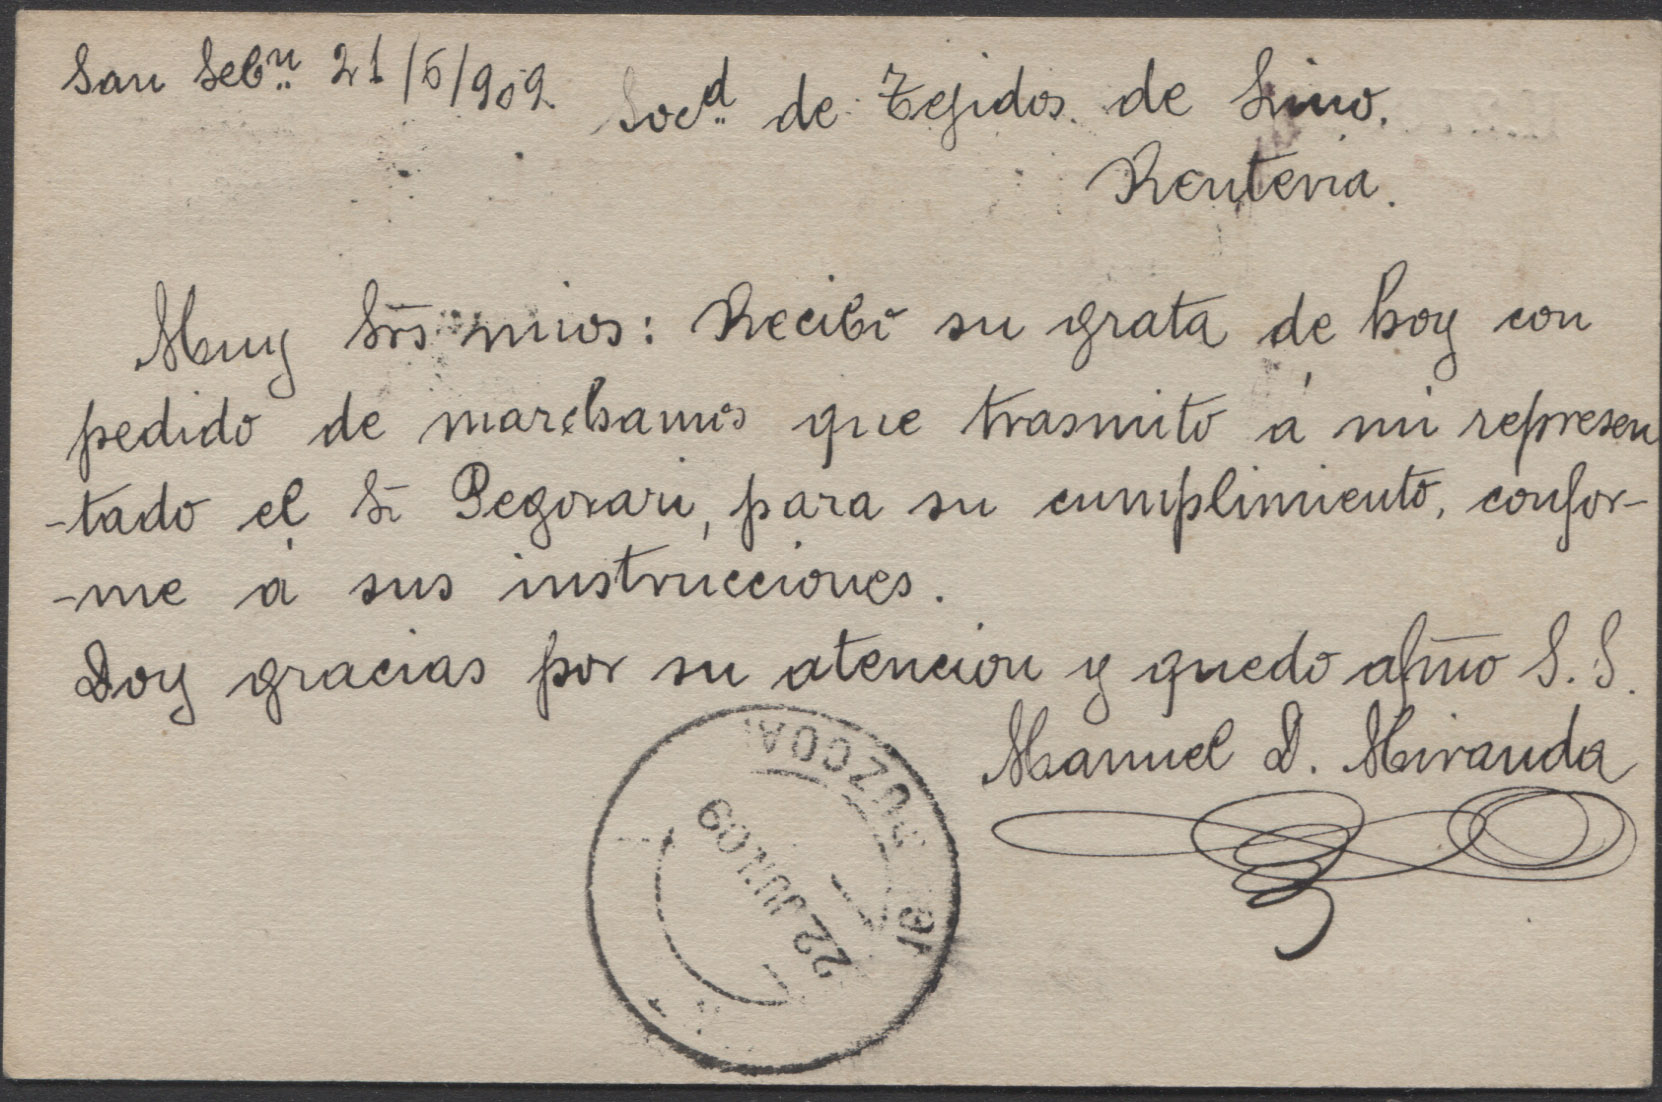 San Sebn. 21/6/909.
Socd. de Tejidos de Lino.
Renteria.
Muy Srs mios: Recibi su grata de hoy con
pedido de marchamos que trasmito á mi represen
-tado el Sr Pegorari, para su cumplimiento, confor-
-me á sus instrucciones.
Doy gracias por su atencion y quedo afmo S. S.
Manuel D. Miranda
22 JUN 09